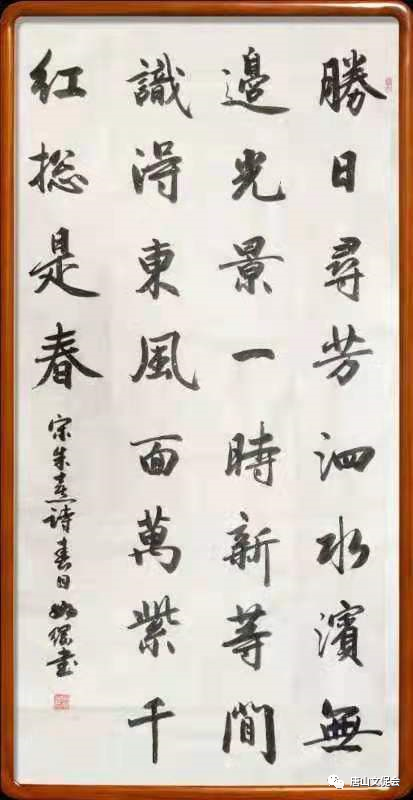 勝日尋芳泗水濱無
邊光景一時新等閒
識得東風面萬紫千
紅摠是春
宋朱熹詩春日 書
唐山文促会